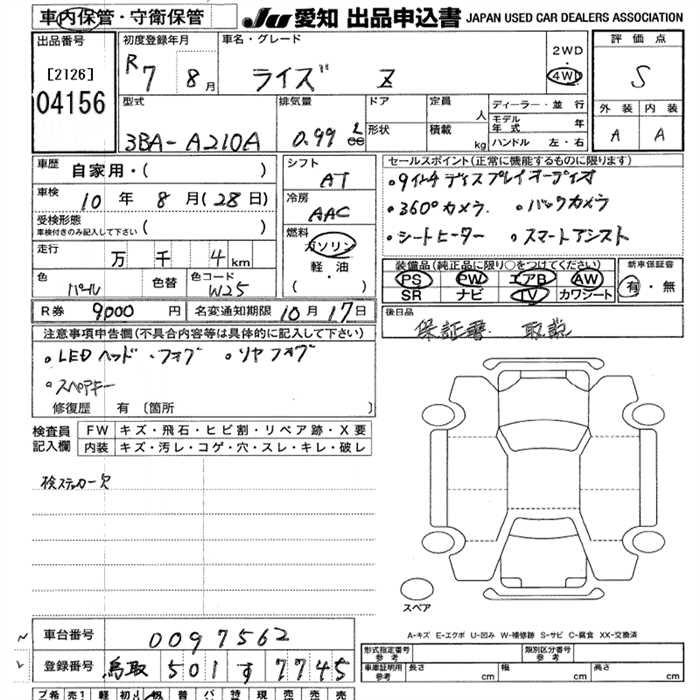 車内保管・守衛保管
JU 愛知 出品申込書 JAPAN USED CAR DEALERS ASSOCIATION
出品番号
[2126]
04156
初度登録年月
R7 8月
車名・グレード
ライズ Z
2WD
・
4WD
評価点
S
外装 内装
A A
型式
3BA-A210A
排気量
0.99 L
cc
ドア
形状
定員 人
積載 kg
ディーラー・並行
モデル年式 年
ハンドル 左・右
車歴 自家用・( )
車検 10年8月(28日)
受検形態
車検付きのみ記入して下さい ( )
走行 万 千 4km
色 パール 色替 色コード W25
シフト
AT
冷房
AAC
燃料
ガソリン
軽・油
( )
セールスポイント(正常に機能するものに限ります)
・9インチディスプレイオーディオ
・360°カメラ ・バックカメラ
・シートヒーター ・スマートアシスト
装備品(純正品に限り○をつけてください)
PS PW エアB AW
SR ナビ TV カワシート
新車保証書
有・無
R券 9000円 名変通知期限 10月17日
後日品
保証書 取説
注意事項申告欄(不具合内容等は具体的に記入して下さい)
・LEDヘッド・フォグ ・リヤフォグ
・スペアキー
修復歴 有 〔箇所 〕
検査員記入欄
FW キズ・飛石・ヒビ割・リペア跡・X要
内装 キズ・汚レ・コゲ・穴・スレ・キレ・破レ
検ステッカー欠
スペア
A-キズ E-エクボ U-凹み W-補修跡 S-サビ C-腐食 XX-交換済
車台番号 0097562
登録番号 鳥取 501 す 7745
形式指定番号 参考
類別区分番号 参考
車庫証明用 参考 長さ cm 幅 cm 高さ cm